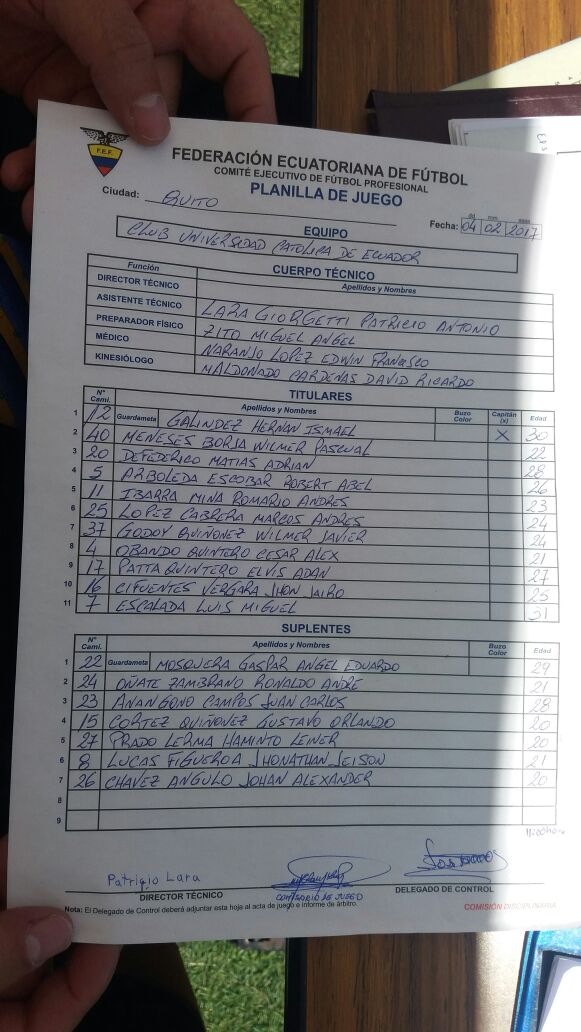 F.E.F.
FEDERACIÓN ECUATORIANA DE FÚTBOL
COMITÉ EJECUTIVO DE FÚTBOL PROFESIONAL
PLANILLA DE JUEGO
Ciudad: QUITO
dd mm aaaa
Fecha: 04 02 2017
EQUIPO
CLUB UNIVERSIDAD CATOLICA DE ECUADOR
CUERPO TÉCNICO
Función Apellidos y Nombres
DIRECTOR TÉCNICO LARA GIORGETTI PATRICIO ANTONIO
ASISTENTE TÉCNICO ZITO MIGUEL ANGEL
PREPARADOR FÍSICO NARANJO LOPEZ EDWIN FRANCISCO
MÉDICO MALDONADO CARDENAS DAVID RICARDO
KINESIÓLOGO
TITULARES
N° Cami. Apellidos y Nombres Buzo Color Capitán (x) Edad
1 12 Guardameta GALINDEZ HERNAN ISMAEL X 30
2 40 MENESES BORJA WILMER PASCUAL 22
3 20 DEFEDERICO MATIAS ADRIAN 28
4 5 ARBOLEDA ESCOBAR ROBERT ABEL 26
5 11 IBARRA MINA ROMARIO ANDRES 23
6 25 LOPEZ CABRERA MARCOS ANDRES 24
7 37 GODOY QUIÑONEZ WILMER JAVIER 24
8 4 OBANDO QUINTERO CESAR ALEX 21
9 17 PATTA QUINTERO ELVIS ADAN 27
10 16 CIFUENTES VERGARA JHON JAIRO 25
11 7 ESCALADA LUIS MIGUEL 31
SUPLENTES
N° Cami. Apellidos y Nombres Buzo Color Edad
1 22 Guardameta MOSQUERA GASPAR ANGEL EDUARDO 29
2 24 OÑATE ZAMBRANO RONALDO ANDRE 21
3 23 ANANGONO CAMPOS JUAN CARLOS 28
4 15 CORTEZ QUIÑONEZ GUSTAVO ORLANDO 20
5 27 PRADO LERMA HAMINTO LEINER 20
6 8 LUCAS FIGUEROA JHONATHAN JEISON 21
7 26 CHAVEZ ANGULO JOHAN ALEXANDER 20
8
9
Patricio Lara
DIRECTOR TÉCNICO COMISARIO DE JUEGO DELEGADO DE CONTROL
Nota: El Delegado de Control deberá adjuntar esta hoja al acta de juego e informe de árbitro. COMISIÓN DISCIPLINARIA